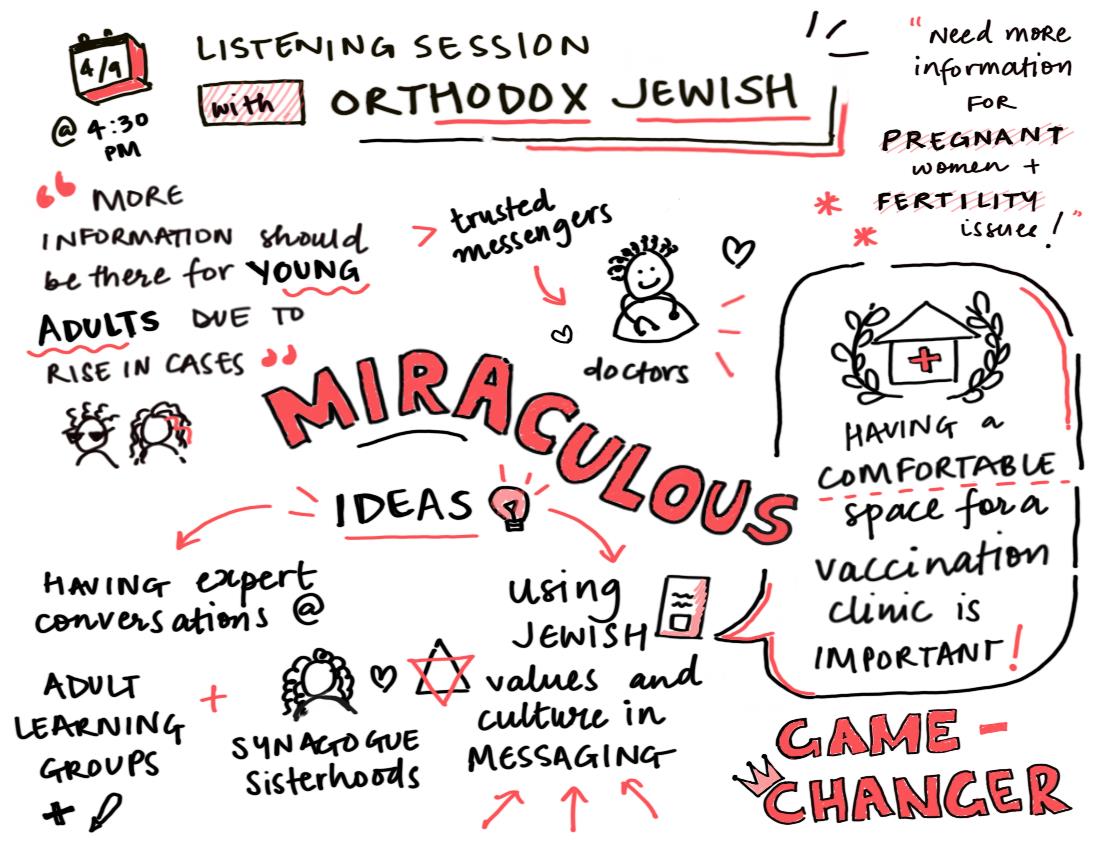 4/9
@ 4:30
PM
LISTENING SESSION
with ORTHODOX JEWISH
"Need more
information
FOR
PREGNANT
women +
FERTILITY
issues!"
“ MORE
INFORMATION should
be there for YOUNG
ADULTS DUE TO
RISE IN CASES ”
> trusted
messengers
doctors
MIRACULOUS
IDEAS
HAVING expert
conversations @
ADULT
LEARNING
GROUPS
+
+
SYNAGOGUE
Sisterhoods
using
JEWISH
values and
culture in
MESSAGING
HAVING a
COMFORTABLE
space for a
vaccination
clinic is
IMPORTANT!
GAME-
CHANGER